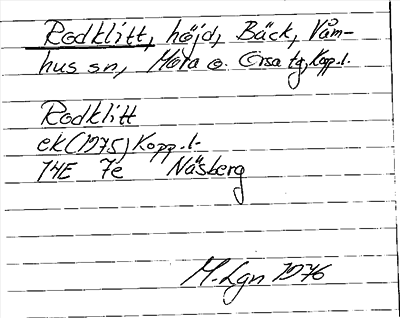 Rodklitt, höjd, Bäck, Våm-
hus sn, Mora o. Orsa tg, Kopp.l.
Rodklitt
ek (1975) Kopp.l.
14E 7e Näsberg
M. Lgn 1976